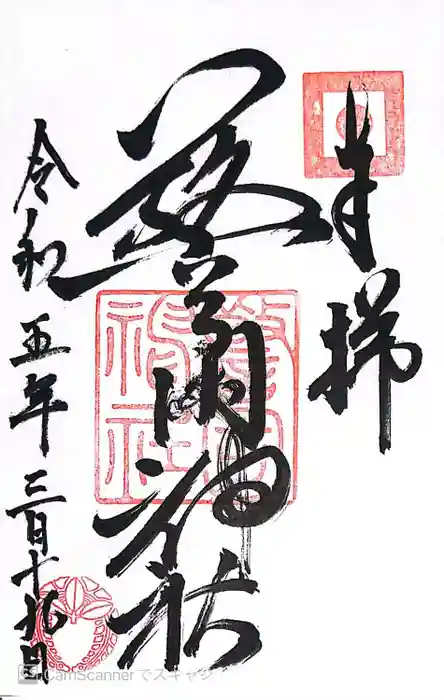 奉拝
神社
令和五年三月十九日
CamScanner でスキャン